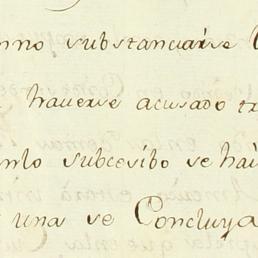 nno substanciarse
haverse acusado
nlo subcesibo se hai
una se Concluya